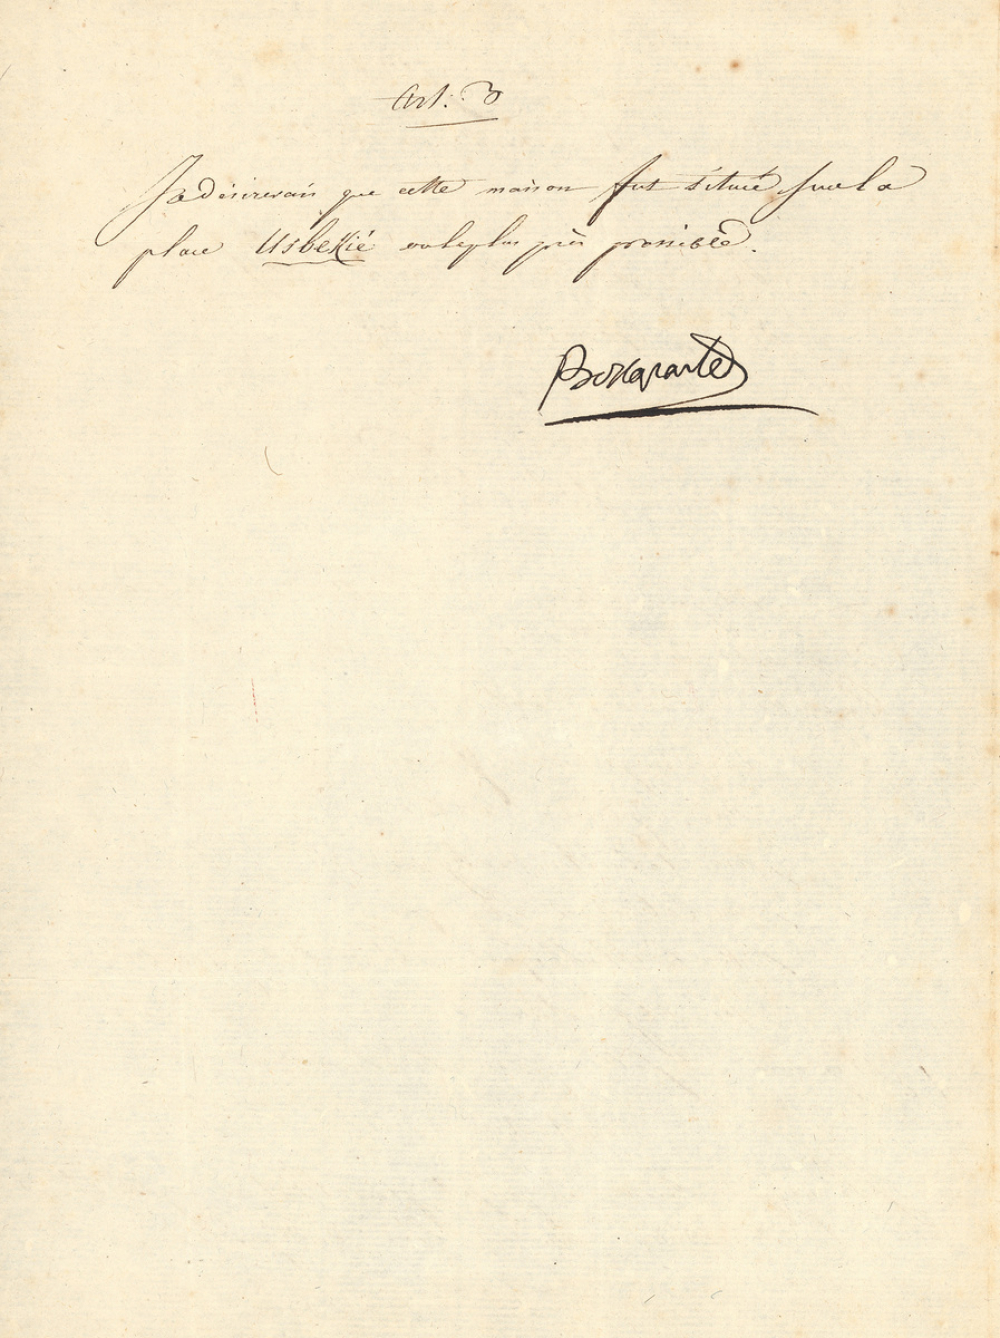 Art. 3
Je désirerais que cette maison fut située sur la
place Usbekié ou le plus près possible.
Bonaparte